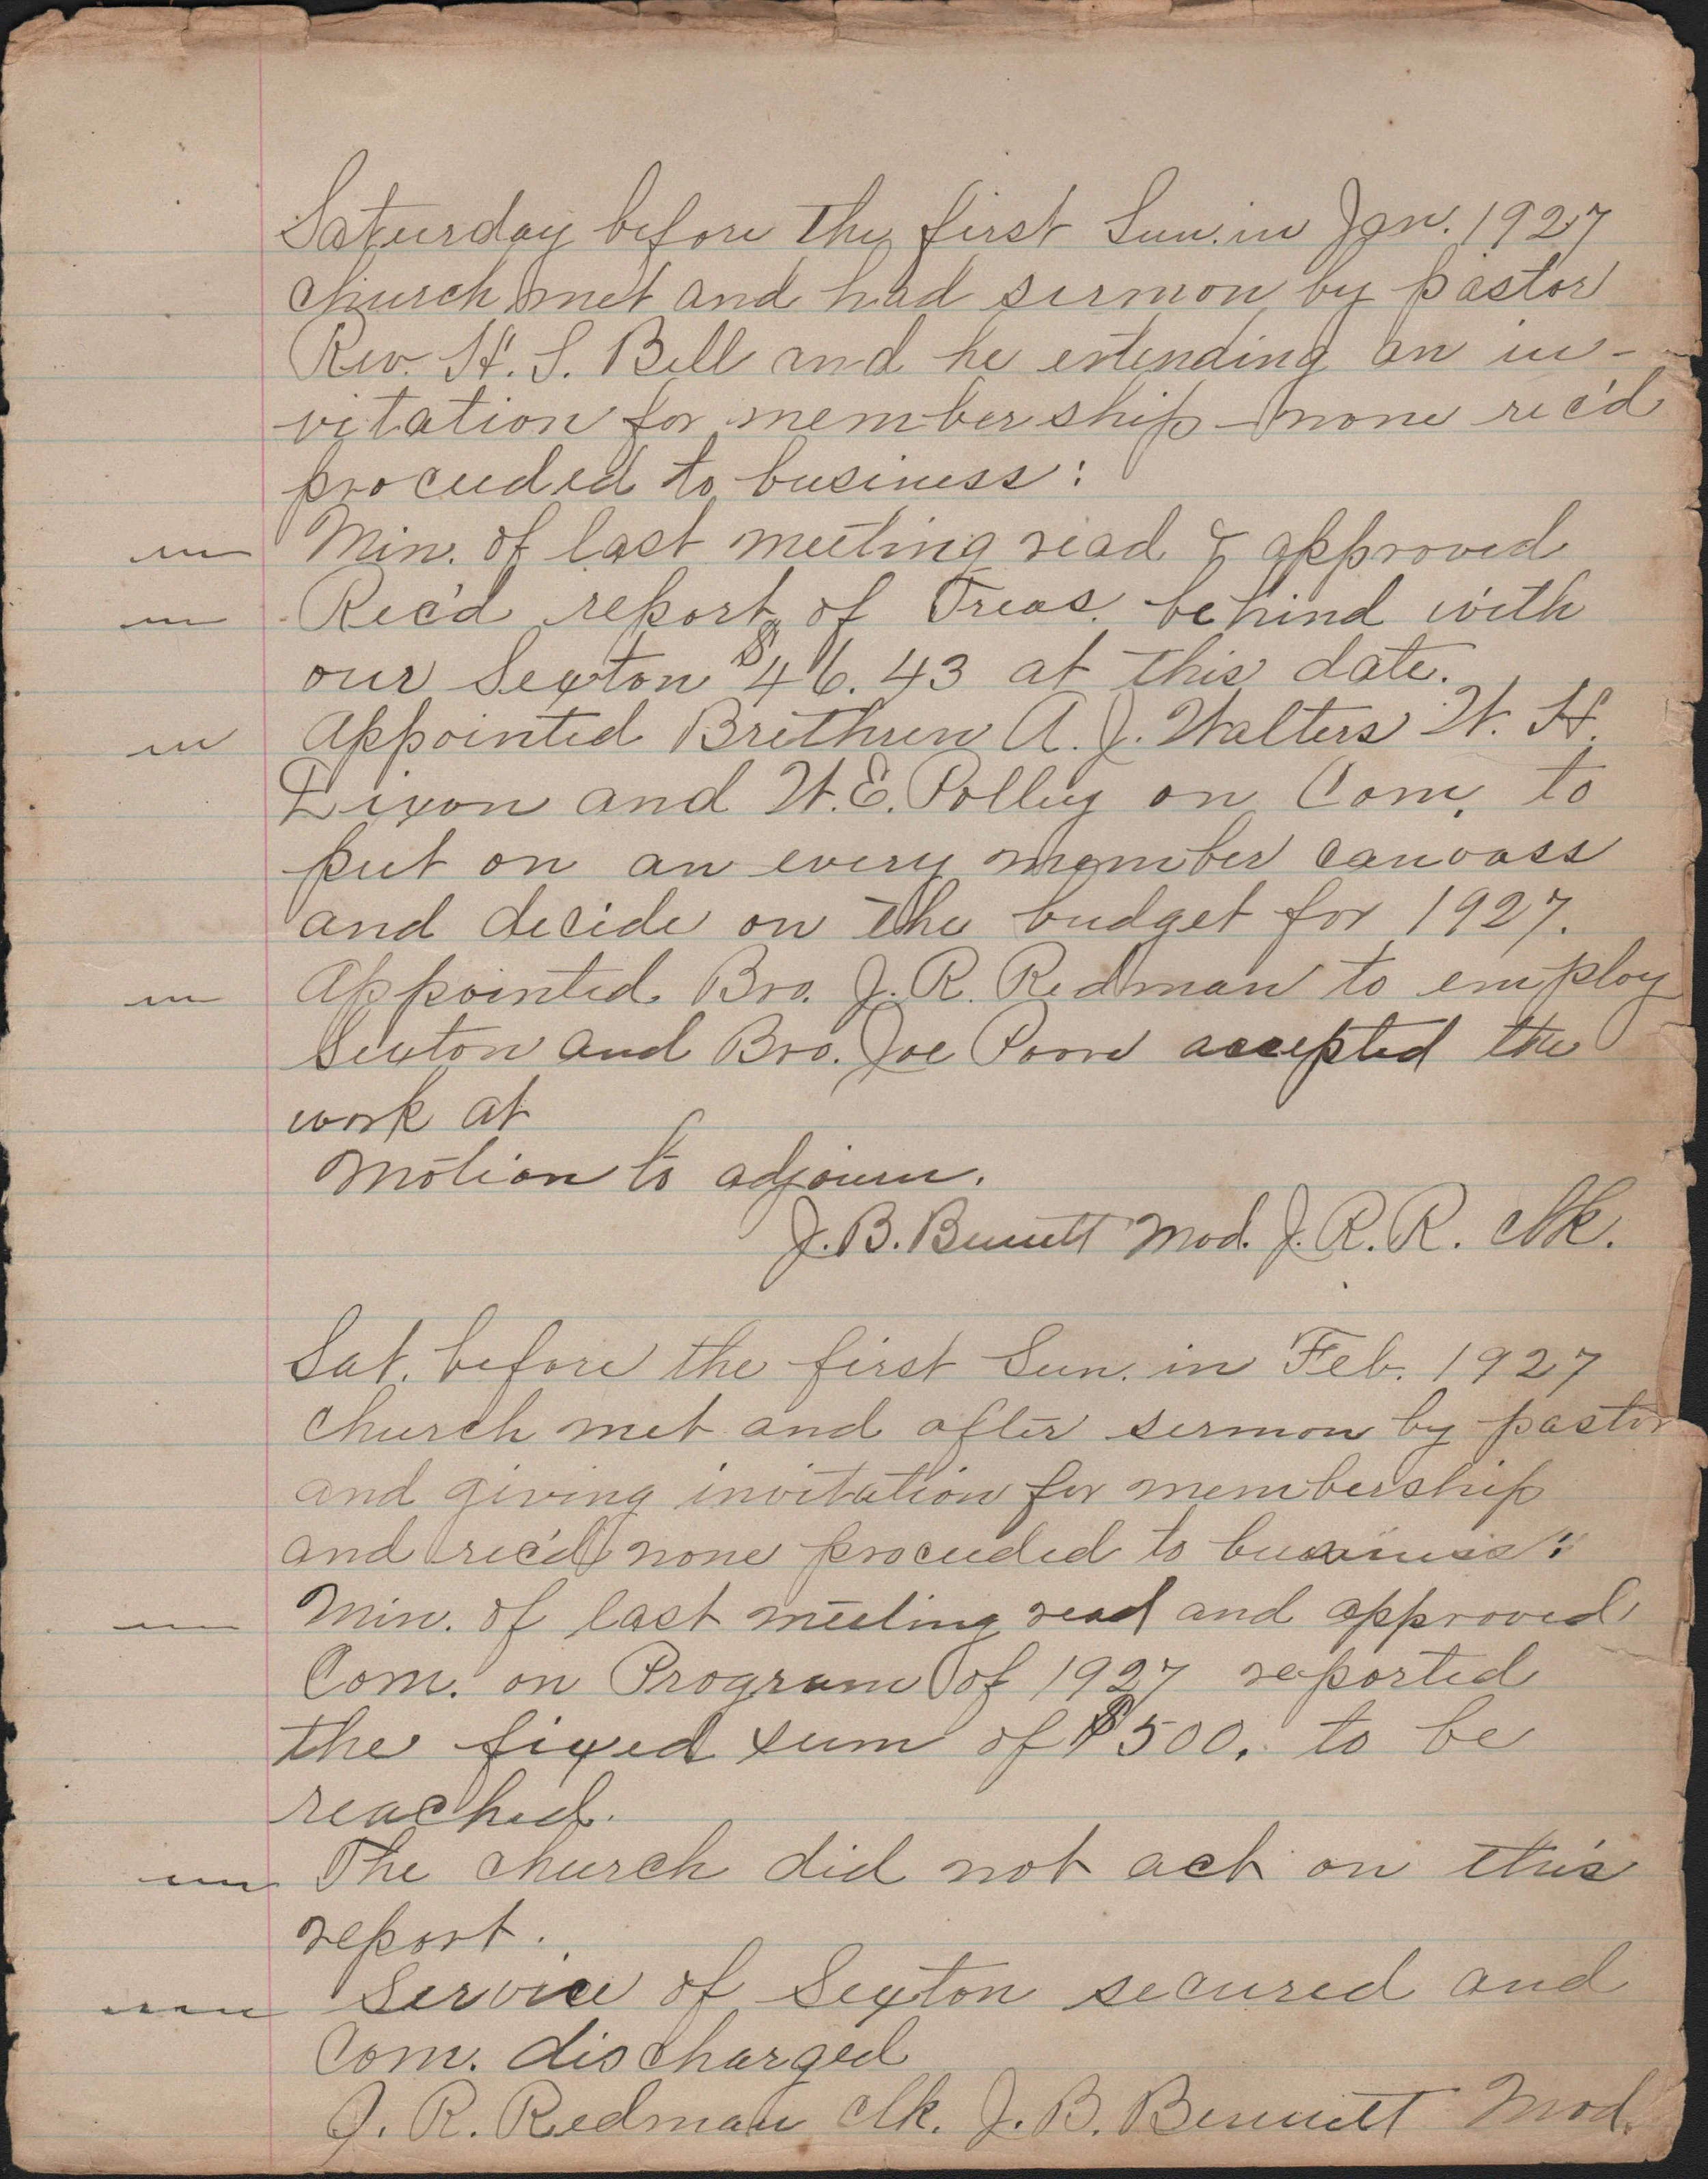 Saturday before the first Sun. in Jan. 1927
church met and had sermon by pastor
Rev. H. S. Bell and he extending an in-
vitation for membership - none rec'd
proceeded to business:
Min. of last meeting read & approved
Rec'd report of Treas. behind with
our Sexton $46.43 at this date.
Appointed Brethren A. J. Walters W. H.
Dixon and W. E. Polley on Com. to
put on an every member canvass
and decide on the budget for 1927.
Appointed Bro. J. R. Redman to employ
Sexton and Bro. Joe accepted the
work at
Motion to adjourn.
J. B. Bennett Mod. J. R. R. Clk.
Sat. before the first Sun. in Feb. 1927
church met and after sermon by pastor
and giving invitation for membership
and rec'd none proceeded to business:
Min. of last meeting read and approved
Com. on Program of 1927 reported
the fixed sum of $500. to be
reached.
The church did not act on this
report.
Service of Sexton secured and
Com. discharged
J. R. Redman Clk. J. B. Bennett Mod.